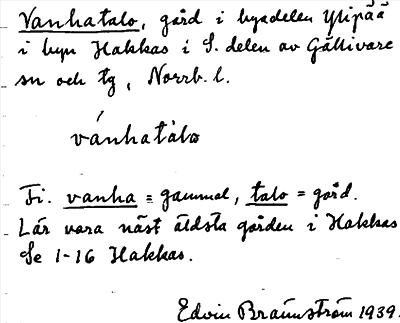 Vanhatalo, gård i byadelen Ylipää
i byn Hakkas i S. delen av Gällivare
sn och tg, Norrb. l.
vánhatàlo
Fi. vanha = gammal, talo = gård.
Lär vara näst äldsta gården i Hakkas
Se 1-16 Hakkas.
Edvin Brännström 1939.